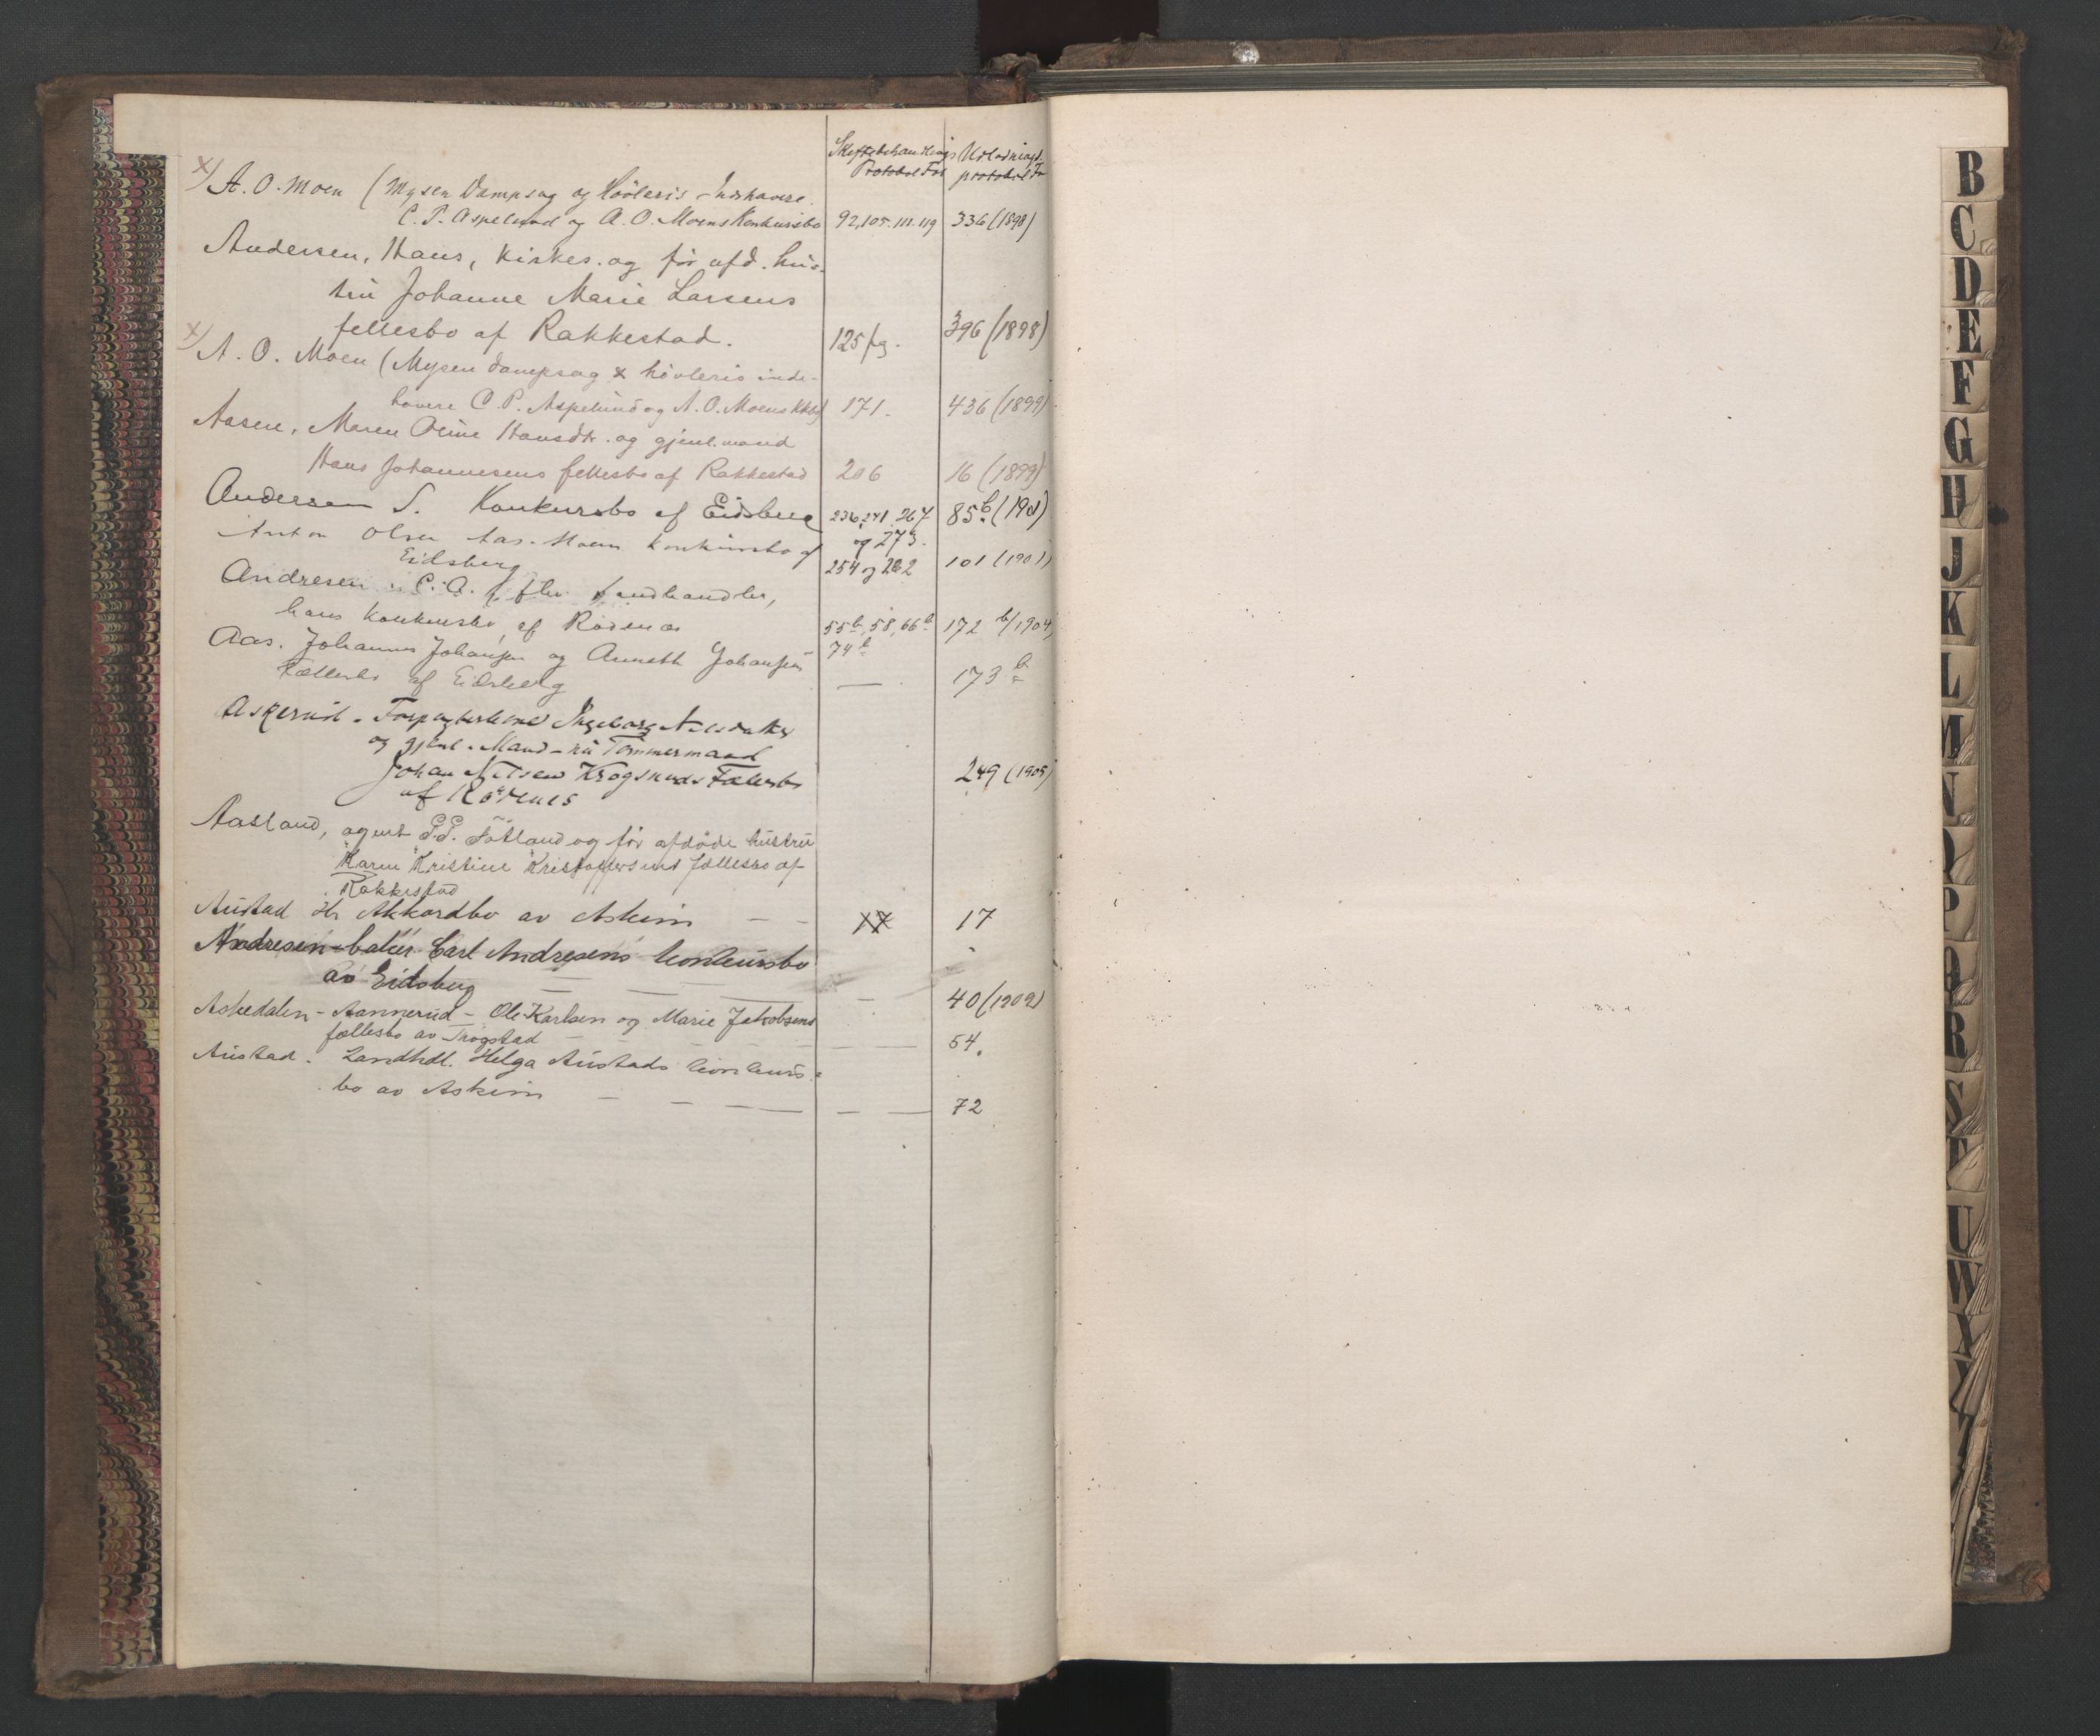 Skiftebehandlings Udlodnings-
Protokol Fol protokol Fol
x) A. O. Moen (Mysen Dampsag og Høvleris Indehavere
C. P. Aspelund og A. O. Moens Konkursbo 92, 105. 111. 119 336 (1898)
Andersen, Hans, Kirkes. og før afd. hus-
tru Johanne Marie Larsens
fellesbo af Rakkestad. 125 fg. 396 (1898)
x) A. O. Moen (Mysen Dampsag & høvleris inde-
havere C. P. Aspelund og A. O. Moens Kkbo) 171. 436 (1899)
Aasen, Maren Oline Hansdtr. og gjenl. mand
Hans Johannesens fellesbo af Rakkestad 206 16 (1899)
Andersen S. Konkursbo af Eidsberg 236, 241, 267 85 b. (1901)
og 273.
Anton Olsen Aas-Moen konkursbo af
Eidsberg 254 og 262 101 (1901)
Andresen C. A. Landhandler,
hans konkursbo af Rødenæs 55 b, 58, 66 b 172 b/1904
74 b
Aas. Johannes Johansen og Anneth Johansens
Fællesbo af Eidsberg — 173 b
Askerud - Ingeborg Nilsdatter
og gjenl. Mand - nu Tømmermand
Johan Nilsen Krogsruds Fællesbo 249 (1905)
af Rødenes
Aasland, agent P. P. og før afdøde hustru
Karen Kristine fællesbo af
Rakkestad
Austad Akkordbo av Askim — — 17 17
Andresen - baker Carl Andresens konkursbo
av Eidsberg — — — — 40 (1909)
Askedalen - Aannerud - Ole Karlsen og Marie Jakobsens
fællesbo av Trøgstad — — — 54.
Austad. Landhdl. Helga Austads konkurs-
bo av Askim — — — — — — 72
B
C
D
E
F
G
H
J
K
L
M
N
O
P
Q
R
S
T
U
W